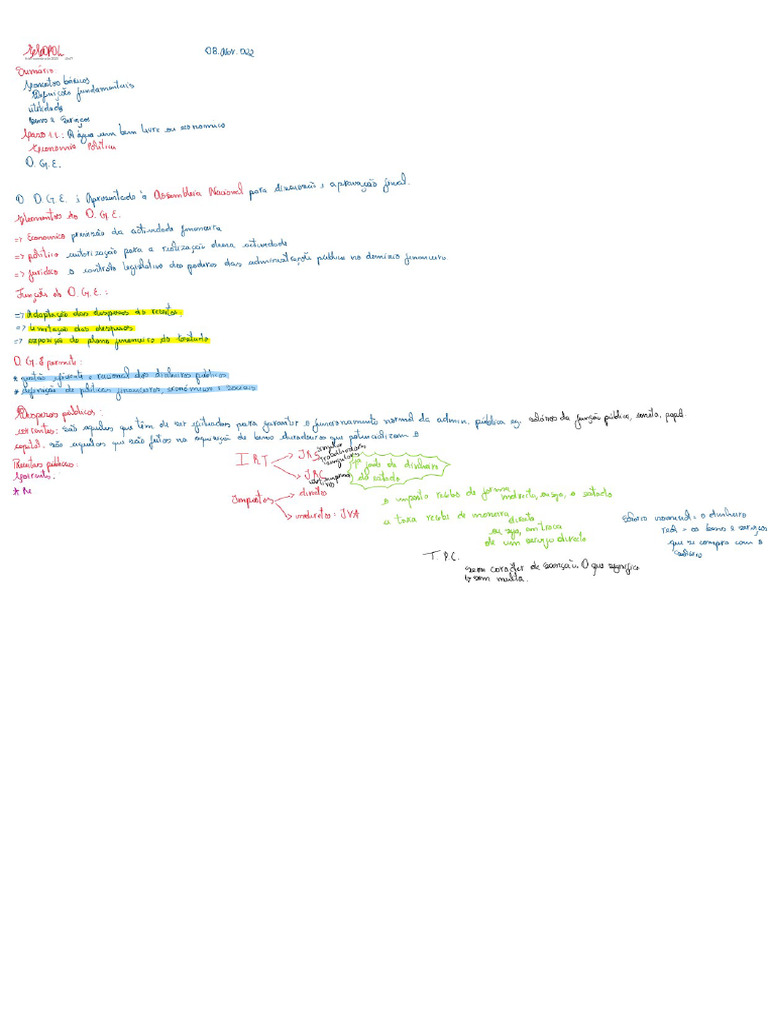 08. Nov. 022
Sumário:
Conceitos básicos
Definições fundamentais
utilidade
Bens e Serviços
A água um bem livre ou economico
Economia Política
O.G.E.
O O.G.E. é Apresentado à Assembleia Nacional para discussão e aprovação final.
Elementos do O.G.E.
=> Economico previsão da actividade financeira
=> político autorização para a realização dessa actividade
=> jurídico o controlo legislativo dos poderes das administração pública no domínio financeiro
Função do O.G.E.:
=> Adaptação das despesas às receitas.
=> Limitação das despesas
=> exposição do plano financeiro do Estado
O.G.E permite:
* gestão eficiente e racional dos dinheiros públicos
* definição de políticas financeiras, económicas e sociais
Despesas públicas:
correntes: são aquelas que têm de ser efetuadas para garantir o funcionamento normal da admin. pública eg: salários da função pública, papel
capital: são aquelas que são feitas na aquisição de bens duradouros que potencializam o
Receitas públicas:
Correntes:
* Re
IRT
trabalhadores
singulares
fonte de dinheiro
do estado
Impostos
directos
indiretos: IVA
o imposto recebe de forma
indirecta, ou seja, o estado
a taxa recebe de maneira
directa
ou seja, em troca
de um serviço directo
salário nominal = o dinheiro
real = os bens e serviços
que se compra com o
salário
T.P.C.
sem caracter de sanção. O que significa
sem multa.